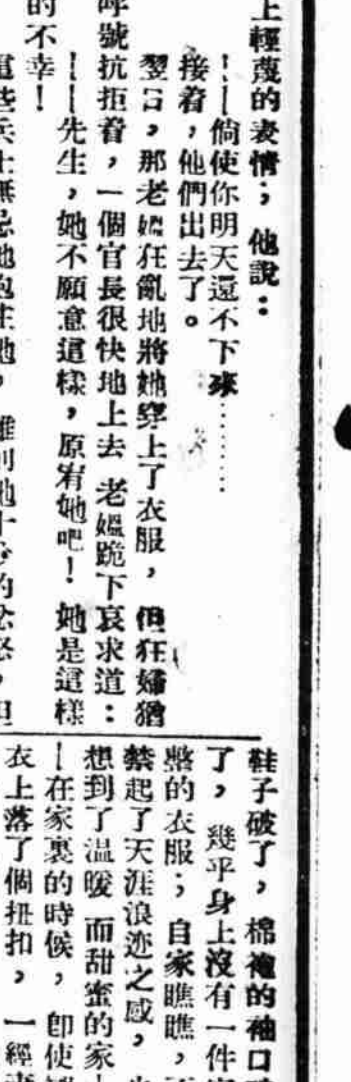 上輕蔑的表情；他說：
——倘使你明天還不下來………
接着，他們出去了。
翌日，那老媼狂亂地將她穿上了衣服，但狂婦猶
呼號抗拒着，一個官長很快地上去 老媼跪下哀求道：
——先生，她不願意這樣，原宥她吧！她是這樣
的不幸！
鞋子破了，棉袍的袖口
了，幾乎身上沒有一件
整的衣服；自家瞧瞧，
起了天涯浪迹之感，
想到了溫暖 而甜蜜的家
—在家裏的時候，卽使
衣上落了個扭扣，一經